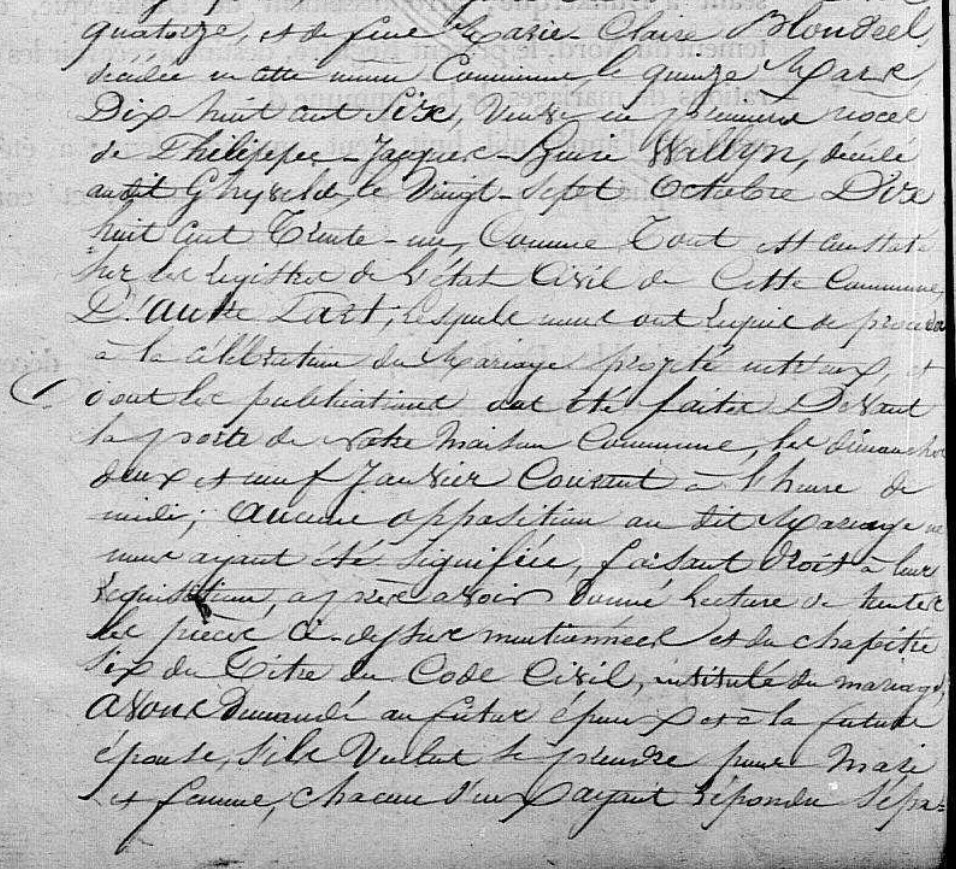 quatorze, et de feue Marie-Claire Blondeel,
décédée en cette même Commune le quinze Mars
Dix-huit cent Seize, Veuve en premières noces
de Philippe-Jacques- Wallyn, décédé
audit Ghyvelde, le Vingt-Sept Octobre Dix
huit cent Trente-un, Comme Tout est constaté
sur les registres de l'état Civil de Cette Commune,
D'autre Part; Lesquels nous ont requis de procéder
à la célébration du Mariage projeté entr'eux, et
dont les publications ont été faites Devant
la porte de notre Maison Commune, les dimanches
deux et neuf Janvier Courant à l'heure de
midi; Aucune opposition au dit Mariage ne
nous ayant été signifiée, faisant droit à leur
réquisition, après avoir donné lecture de toutes
les pièces ci-dessus mentionnées et du chapitre
six du Titre du Code Civil, intitulé du mariage,
Avons Demandé au futur époux et à la future
épouse, s'ils Veulent se prendre pour Mari
et femme, chacun d'eux ayant répondu sépa=